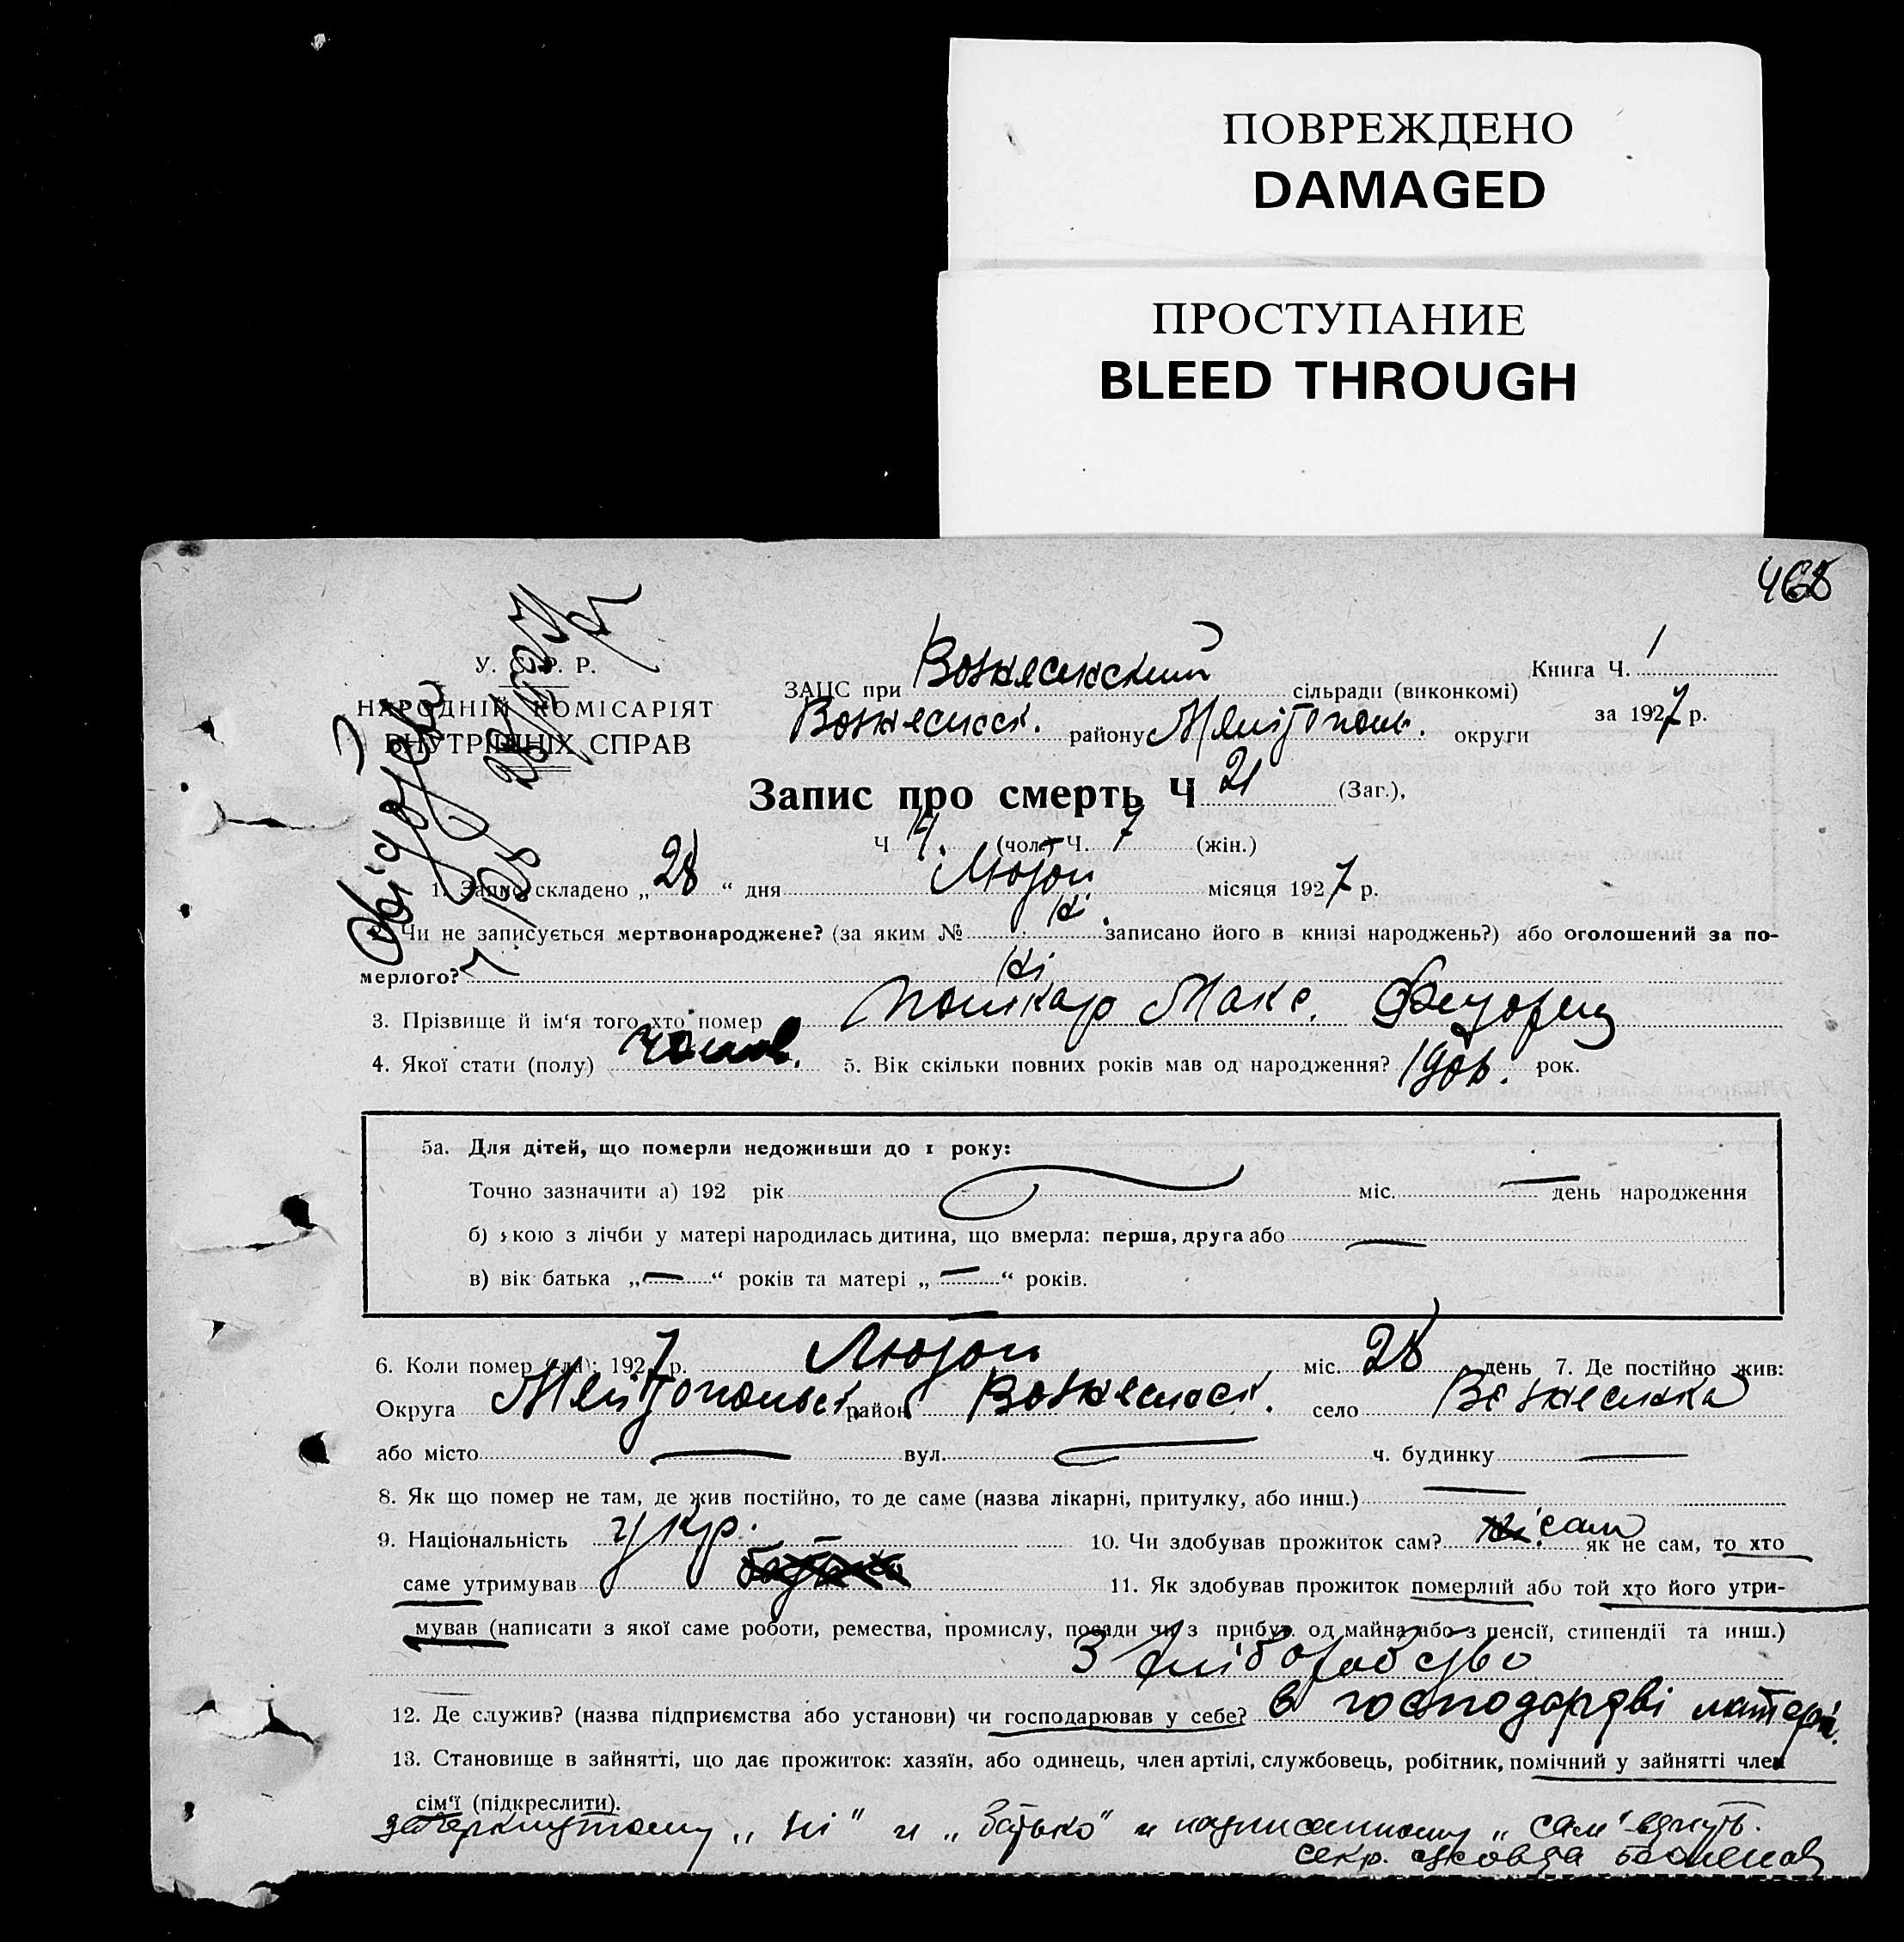 ПОВРЕЖДЕНО
DAMAGED
ПРОСТУПАНИЕ
BLEED THROUGH
468
У. С. Р. Р.
НАРОДНІЙ КОМІСАРІЯТ
ВНУТРІШНІХ СПРАВ
ЗАЦС при Вознесенский сільради (виконкомі)
Книга Ч. 1
Вознесенск. району Мелітополь. округи
за 1927 р.
Запис про смерть Ч 21 (Заг.),
Ч 14. (чол.) Ч. 7 (жін.)
1. Запис складено „ 28 “ дня Лютого місяця 1927 р.
2. Чи не записується мертвонароджене? (за яким № ні. записано його в книзі народжень?) або оголошений за по-
мерлого? ні
3. Прізвище й ім‘я того хто помер Макс. Федорец
4. Якої стати (полу) чолов. 5. Вік скільки повних років мав од народження? рок.
5а. Для дітей, що померли недоживши до 1 року:
Точно зазначити а) 192 рік міс. — день народження
б) якою з лічби у матері народилась дитина, що вмерла: перша, друга або —
в) вік батька „ — “ років та матері „ — “ років.
6. Коли помер (ла): 1927 р. Лютого міс. 28 день 7. Де постійно жив:
Округа Мелітопольск. район Вознесенск. село Вознесенка
або місто — вул. — ч. будинку —
8. Як що помер не там, де жив постійно, то де саме (назва лікарні, притулку, або инш.) —
9. Національність укр. 10. Чи здобував прожиток сам? ні. сам як не сам, то хто
саме утримував батько 11. Як здобував прожиток померлий або той хто його утри-
мував (написати з якої саме роботи, ремества, промислу, посади чи з прибут. од майна або з пенсії, стипендії та инш.)
З хліборобство
12. Де служив? (назва підприємства або установи) чи господарював у себе? в господарстві матері.
13. Становище в зайнятті, що дає прожиток: хазяїн, або одинець, член артілі, службовець, робітник, помічний у зайнятті член
сім‘ї (підкреслити).
„ні“ и „батько“ и надписанному „сам“
секр.